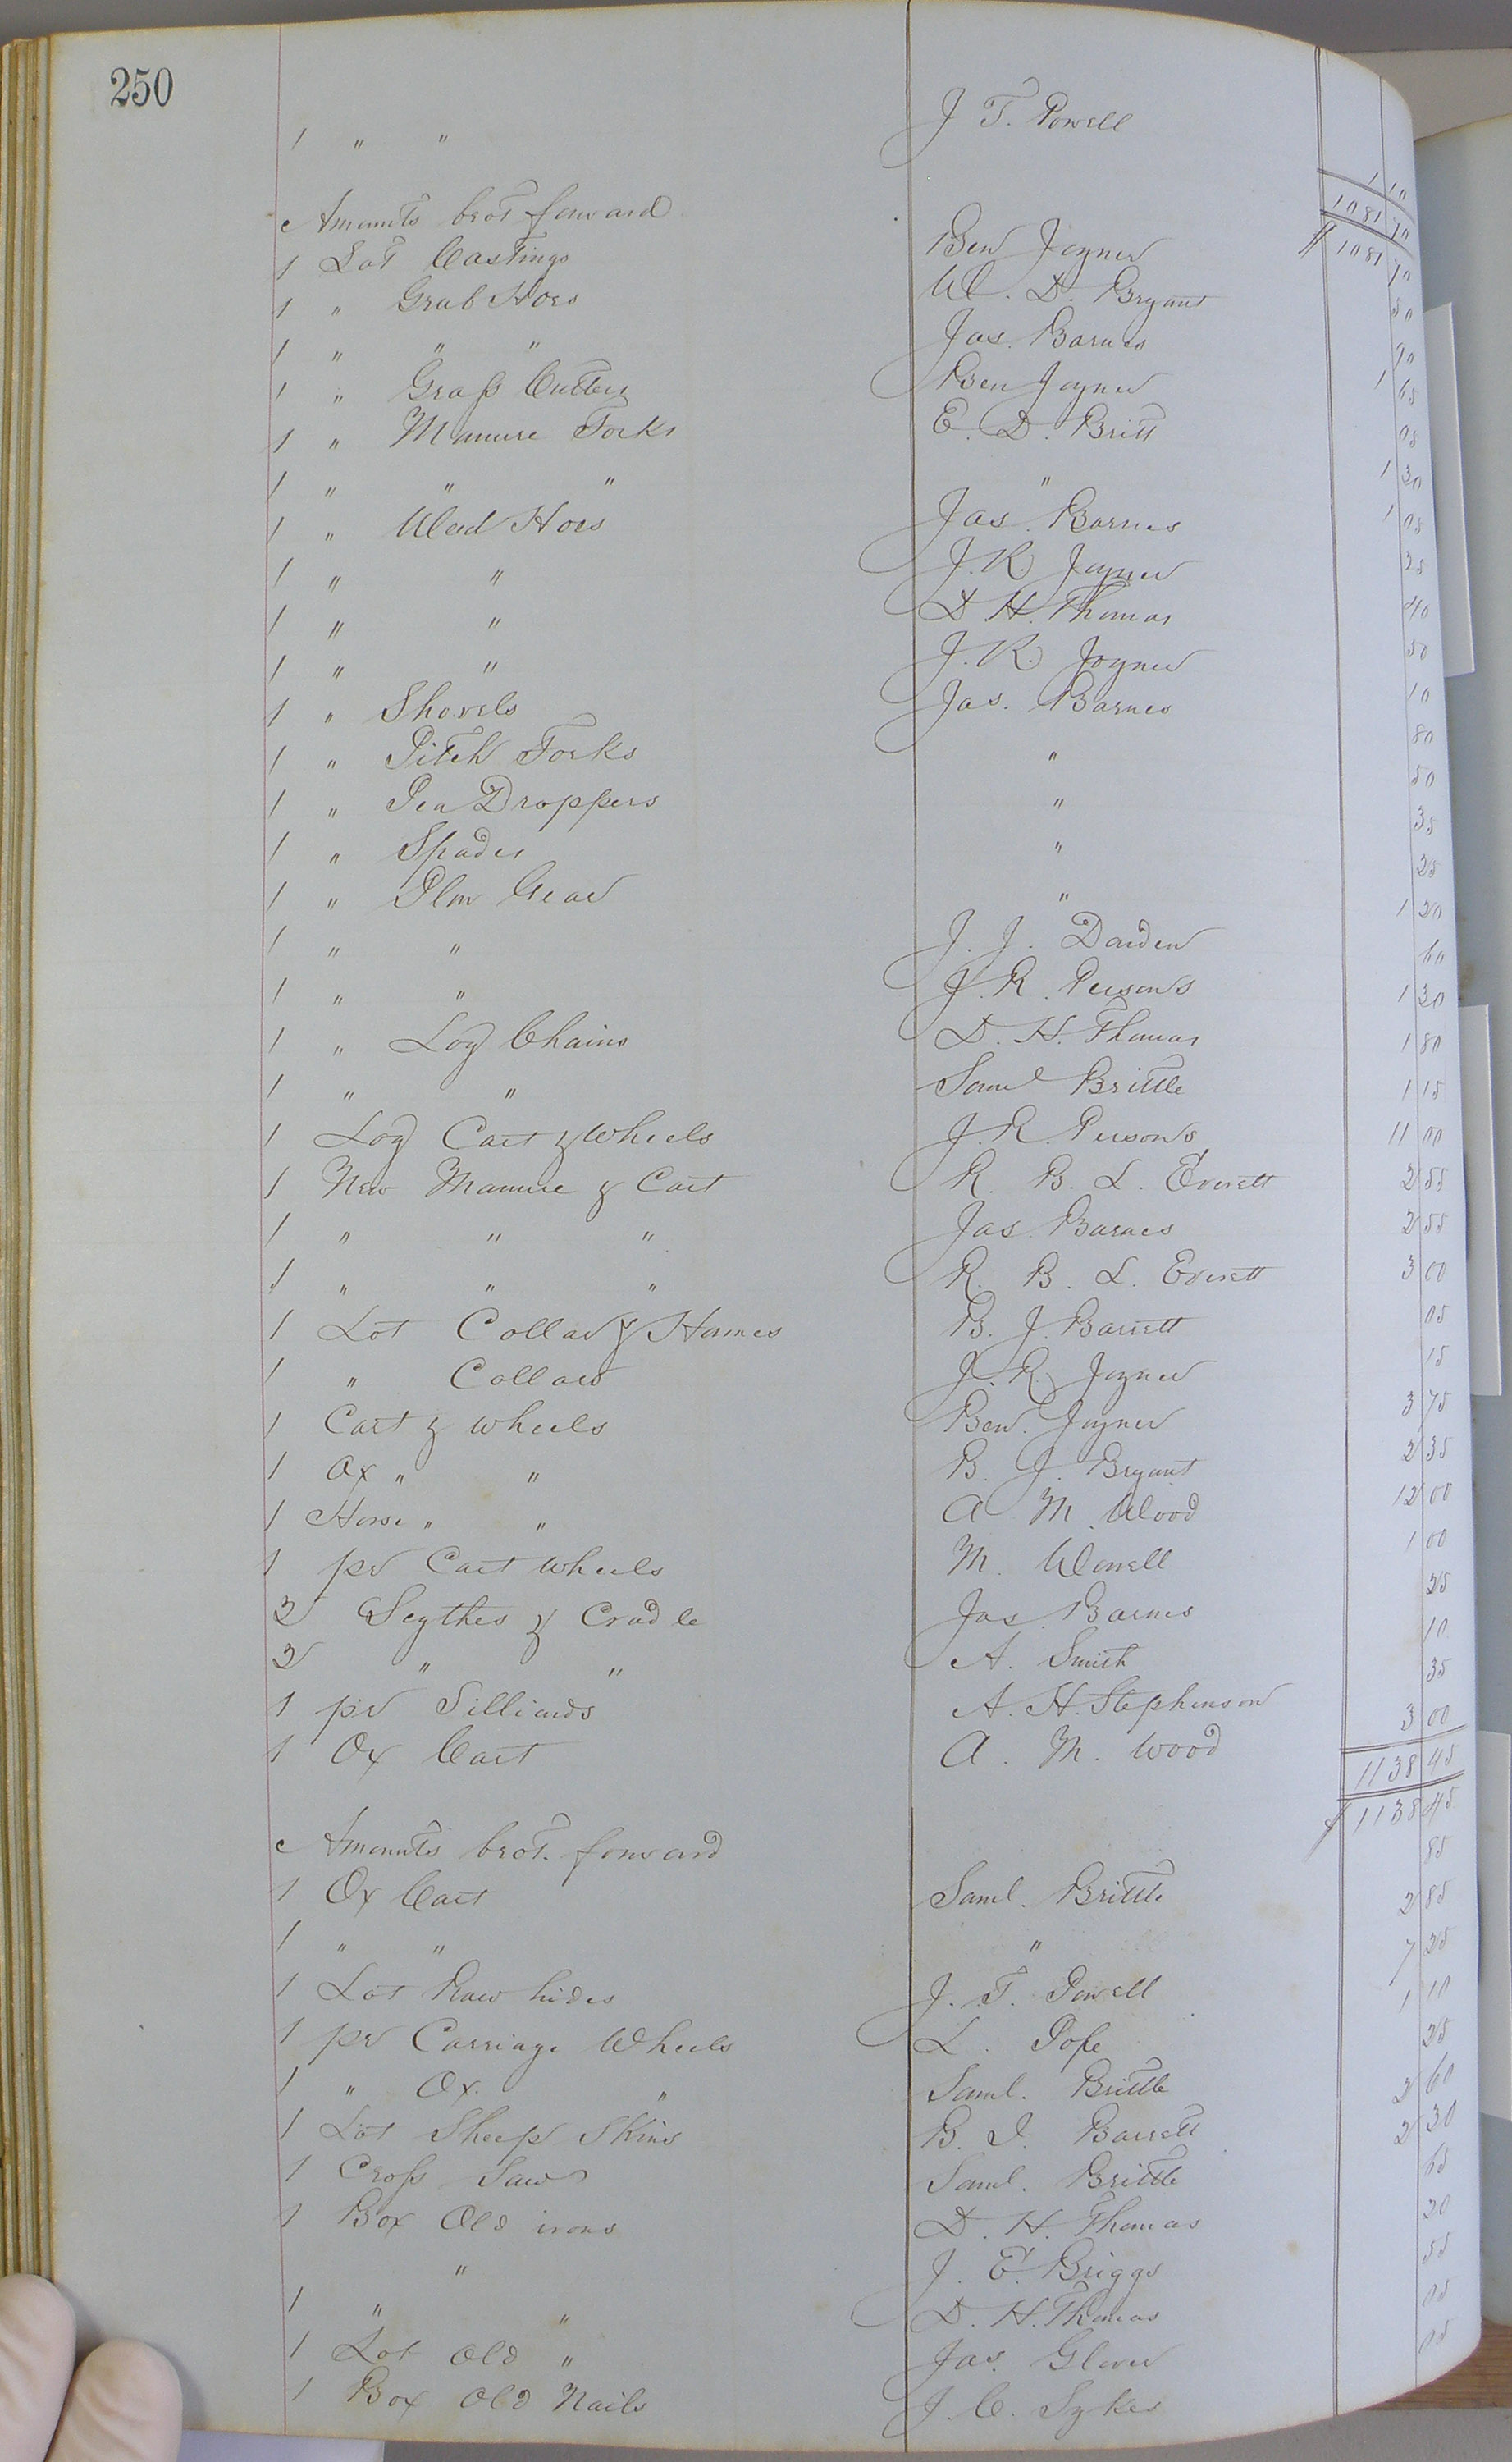 250
1 " " J T. Powell 1 10
1081 70
Amounts brot forward $1081 70
1 Lot Castings Ben Joyner 50
1 " Grub Hoes W. D. Bryant 90
1 " " " Jas. Barnes 1 65
1 " Grass Cutters Ben Joyner 05
1 " Manure Forks E. D. Britt 1 30
1 " " " " 1 05
1 " Weed Hoes Jas. Barnes 25
1 " " J. R. Joyner 40
1 " " D. H. Thomas 50
1 " " J. R. Joyner 10
1 " Shovels Jas. Barnes 80
1 " Pitch Forks " 50
1 " Pea Droppers " 35
1 " Spades " 25
1 " Plow Gear " 1 20
1 " " J. J. Darden 60
1 " " J. R. Persons 1 30
1 " Log Chains D. H. Thomas 1 80
1 " " Saml Brittle 1 15
1 Log Cart & Wheels J. R. Persons 11 00
1 New Manure & Cart R. B. L. Everett 2 55
1 " " " Jas. Barnes 2 55
1 " " " R. B. L. Everett 3 00
1 Lot Collar & Hames B. J. Barrett 05
1 " Collars J. R. Joyner 15
1 Cart & wheels Ben. Joyner 3 75
1 Ox " " B. J. Bryant 2 35
1 Horse " " A. M. Wood 12 00
1 pr Cart wheels M. Worrell 1 00
2 Scythes & Cradle Jas. Barnes 25
2 " " A. Smith 10
1 pr Stilliards A. H. Stephenson 35
1 Ox Cart A. M. Wood 3 00
1138 45
Amounts brot. forward $1138 45
1 Ox Cart Saml. Brittle 85
1 " " " 2 85
1 Lot Raw hides J. T. Powell 7 25
1 pr Carriage Wheels L. Pope 1 10
1 " Ox. " Saml. Brittle 25
1 Lot Sheep Skins B. J. Barrett 2 60
1 Cross Saw Saml. Brittle 2 30
1 Box Old irons D. H. Thomas 65
" J. E. Briggs 20
1 " " D. H. Thomas 55
1 Lot Old " Jas. Glover 05
1 Box Old Nails J. C. Sykes 05